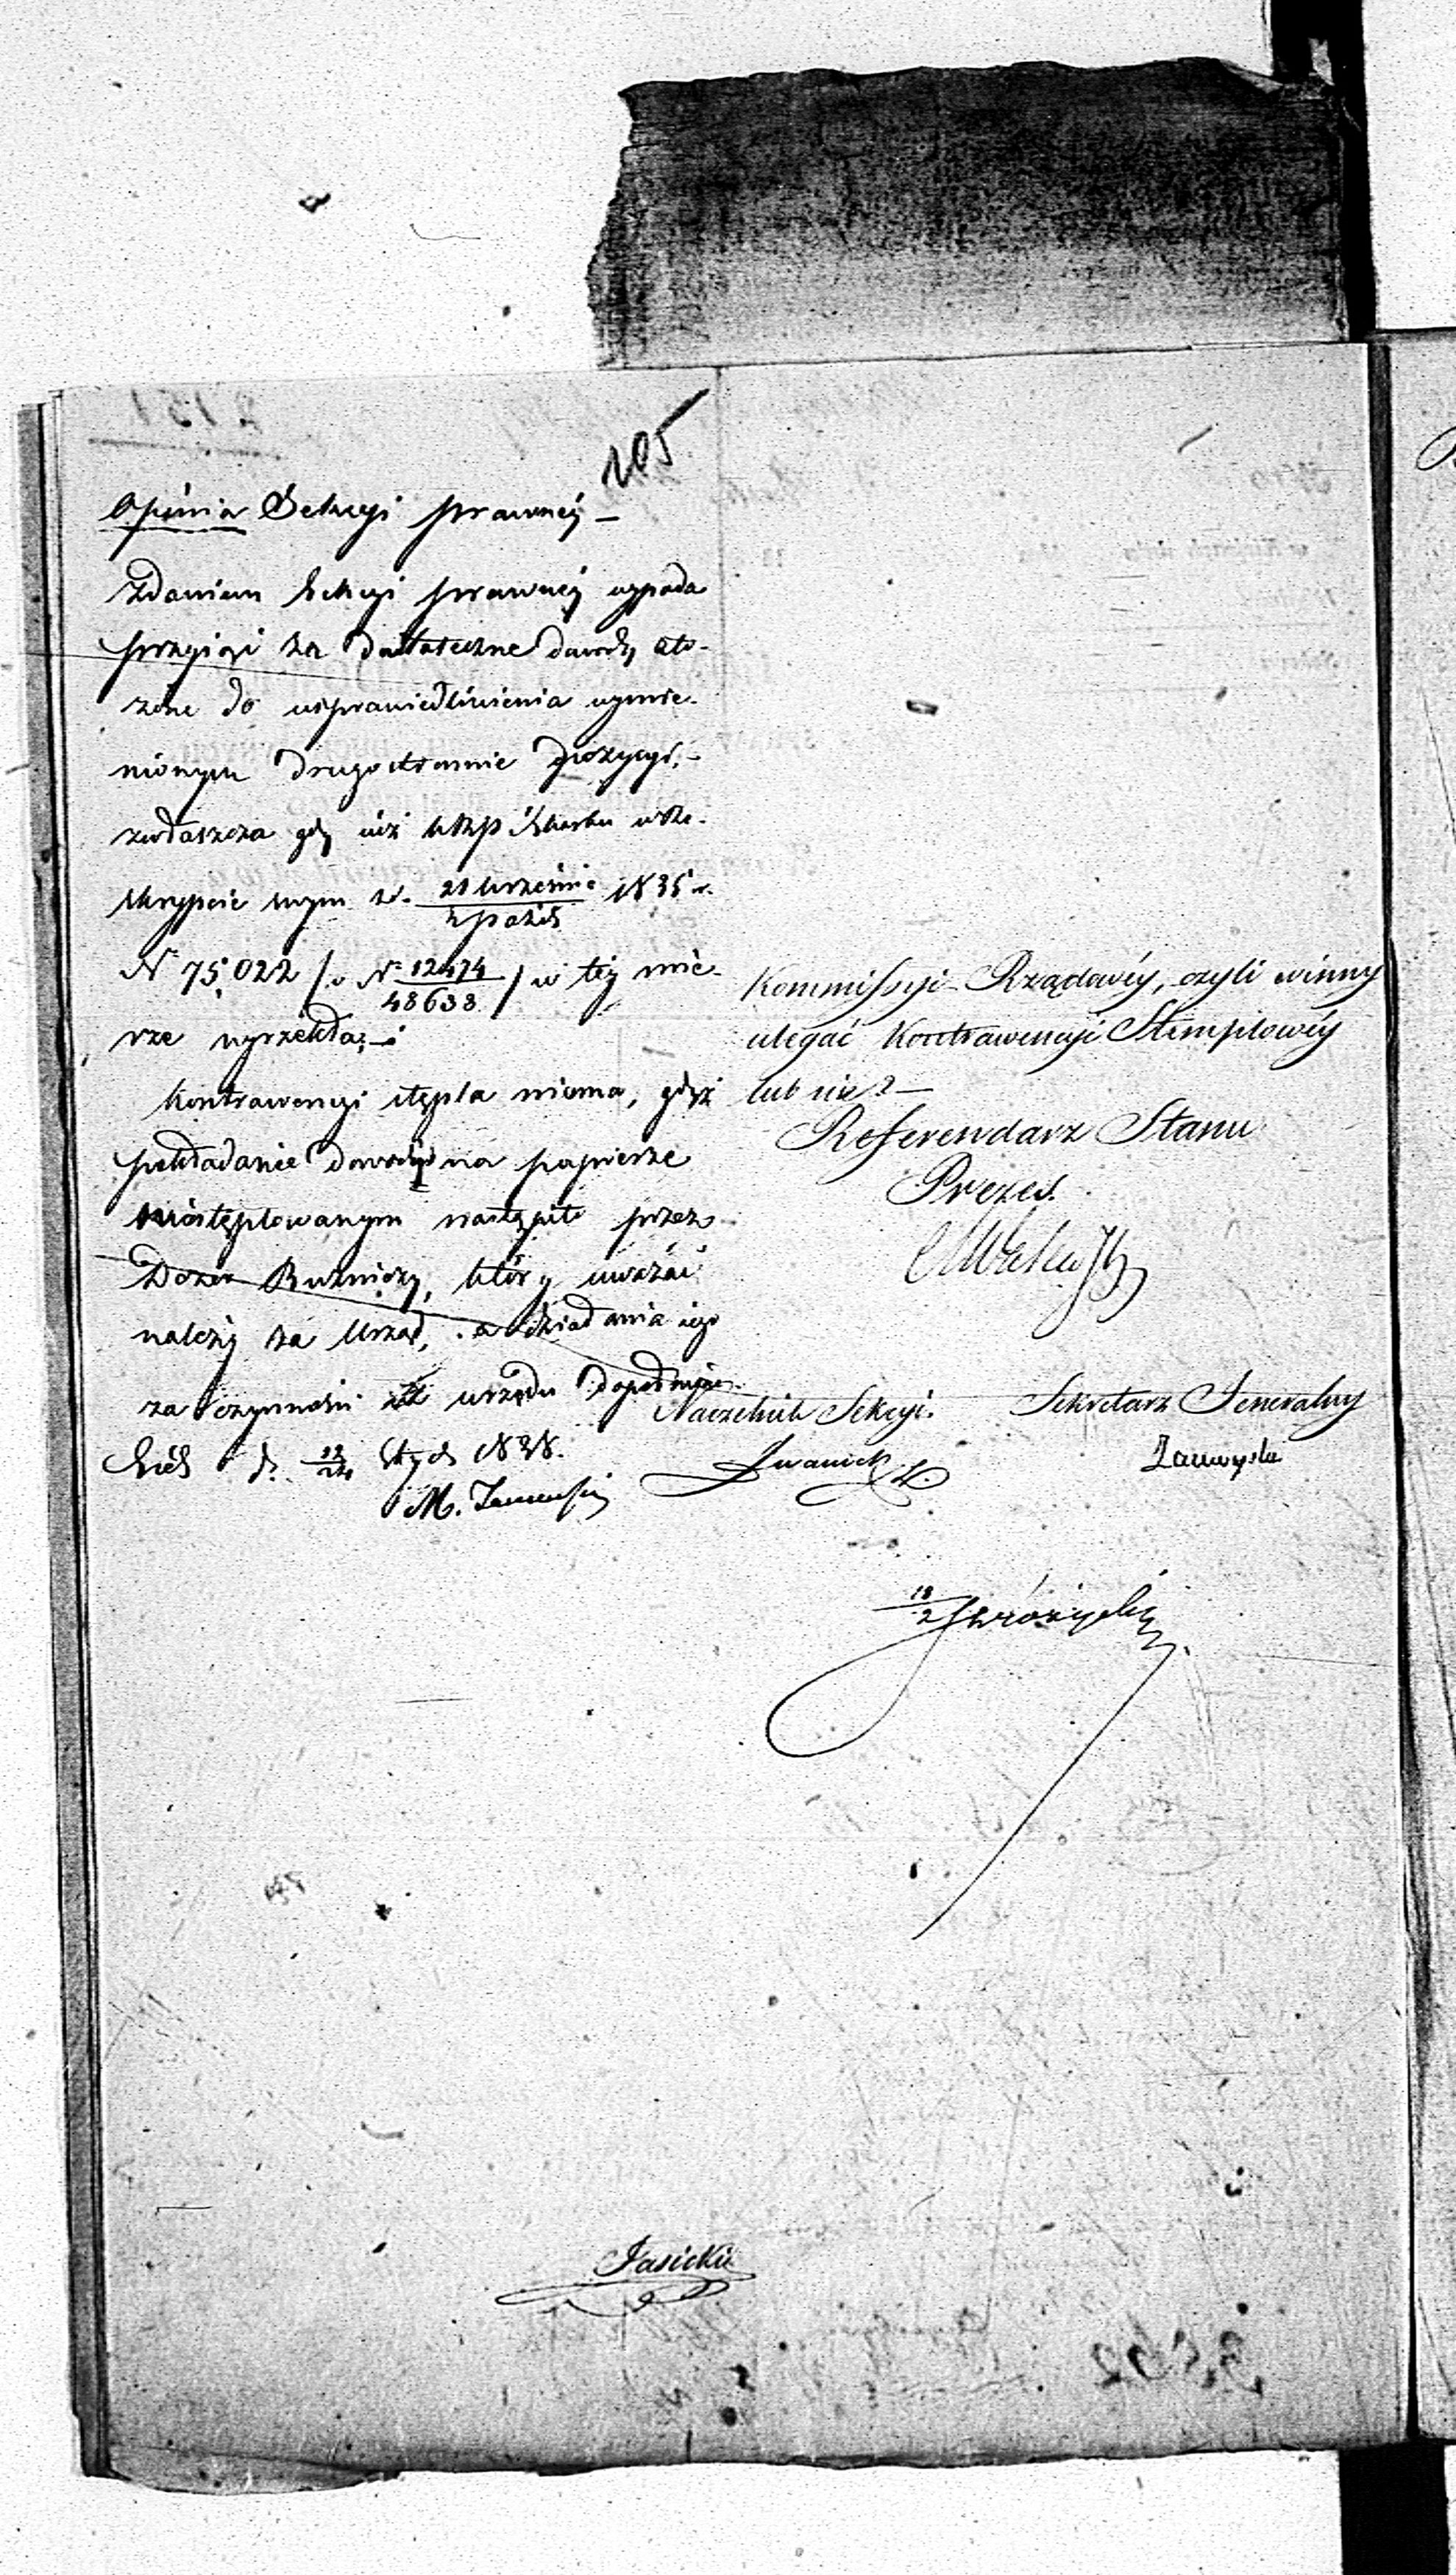 105
Opinia Sekcyi prawnéj –
Zdaniem Sekcyi prawnéj wypada
przyiąć za dostateczne dowody zło-
żone do usprawiedliwienia wymie-
nionych drugostronnie pozycyi,
zwłaszcza gdy iuż KRP i Skarbu w Re-
skrypcie swym z d. 21 Września / 3 paźdz 1835 r.
N 75,022 /: N 12474 / 48633 / w téj mie-
rze wyrzekła –
Kontrawencyi stępla niema, gdyż
poskładanie dowodów na papierze
niestęplowanym nastąpiło przez
Dozór Bużniczy, który uważać
należy za Urząd, a działania iego
za czynności urzędu dopełnione.
Kielc d. 12/24 Stycz 1838.
M.
Kommissyi Rządowéy, czyli winny
ulegać Kontrawencyi Stemplowéy
lub nie? –
Referendarz Stanu
Prezes.
Naczelnik Sekcyi.
Sekretarz Jeneralny
Jasicki